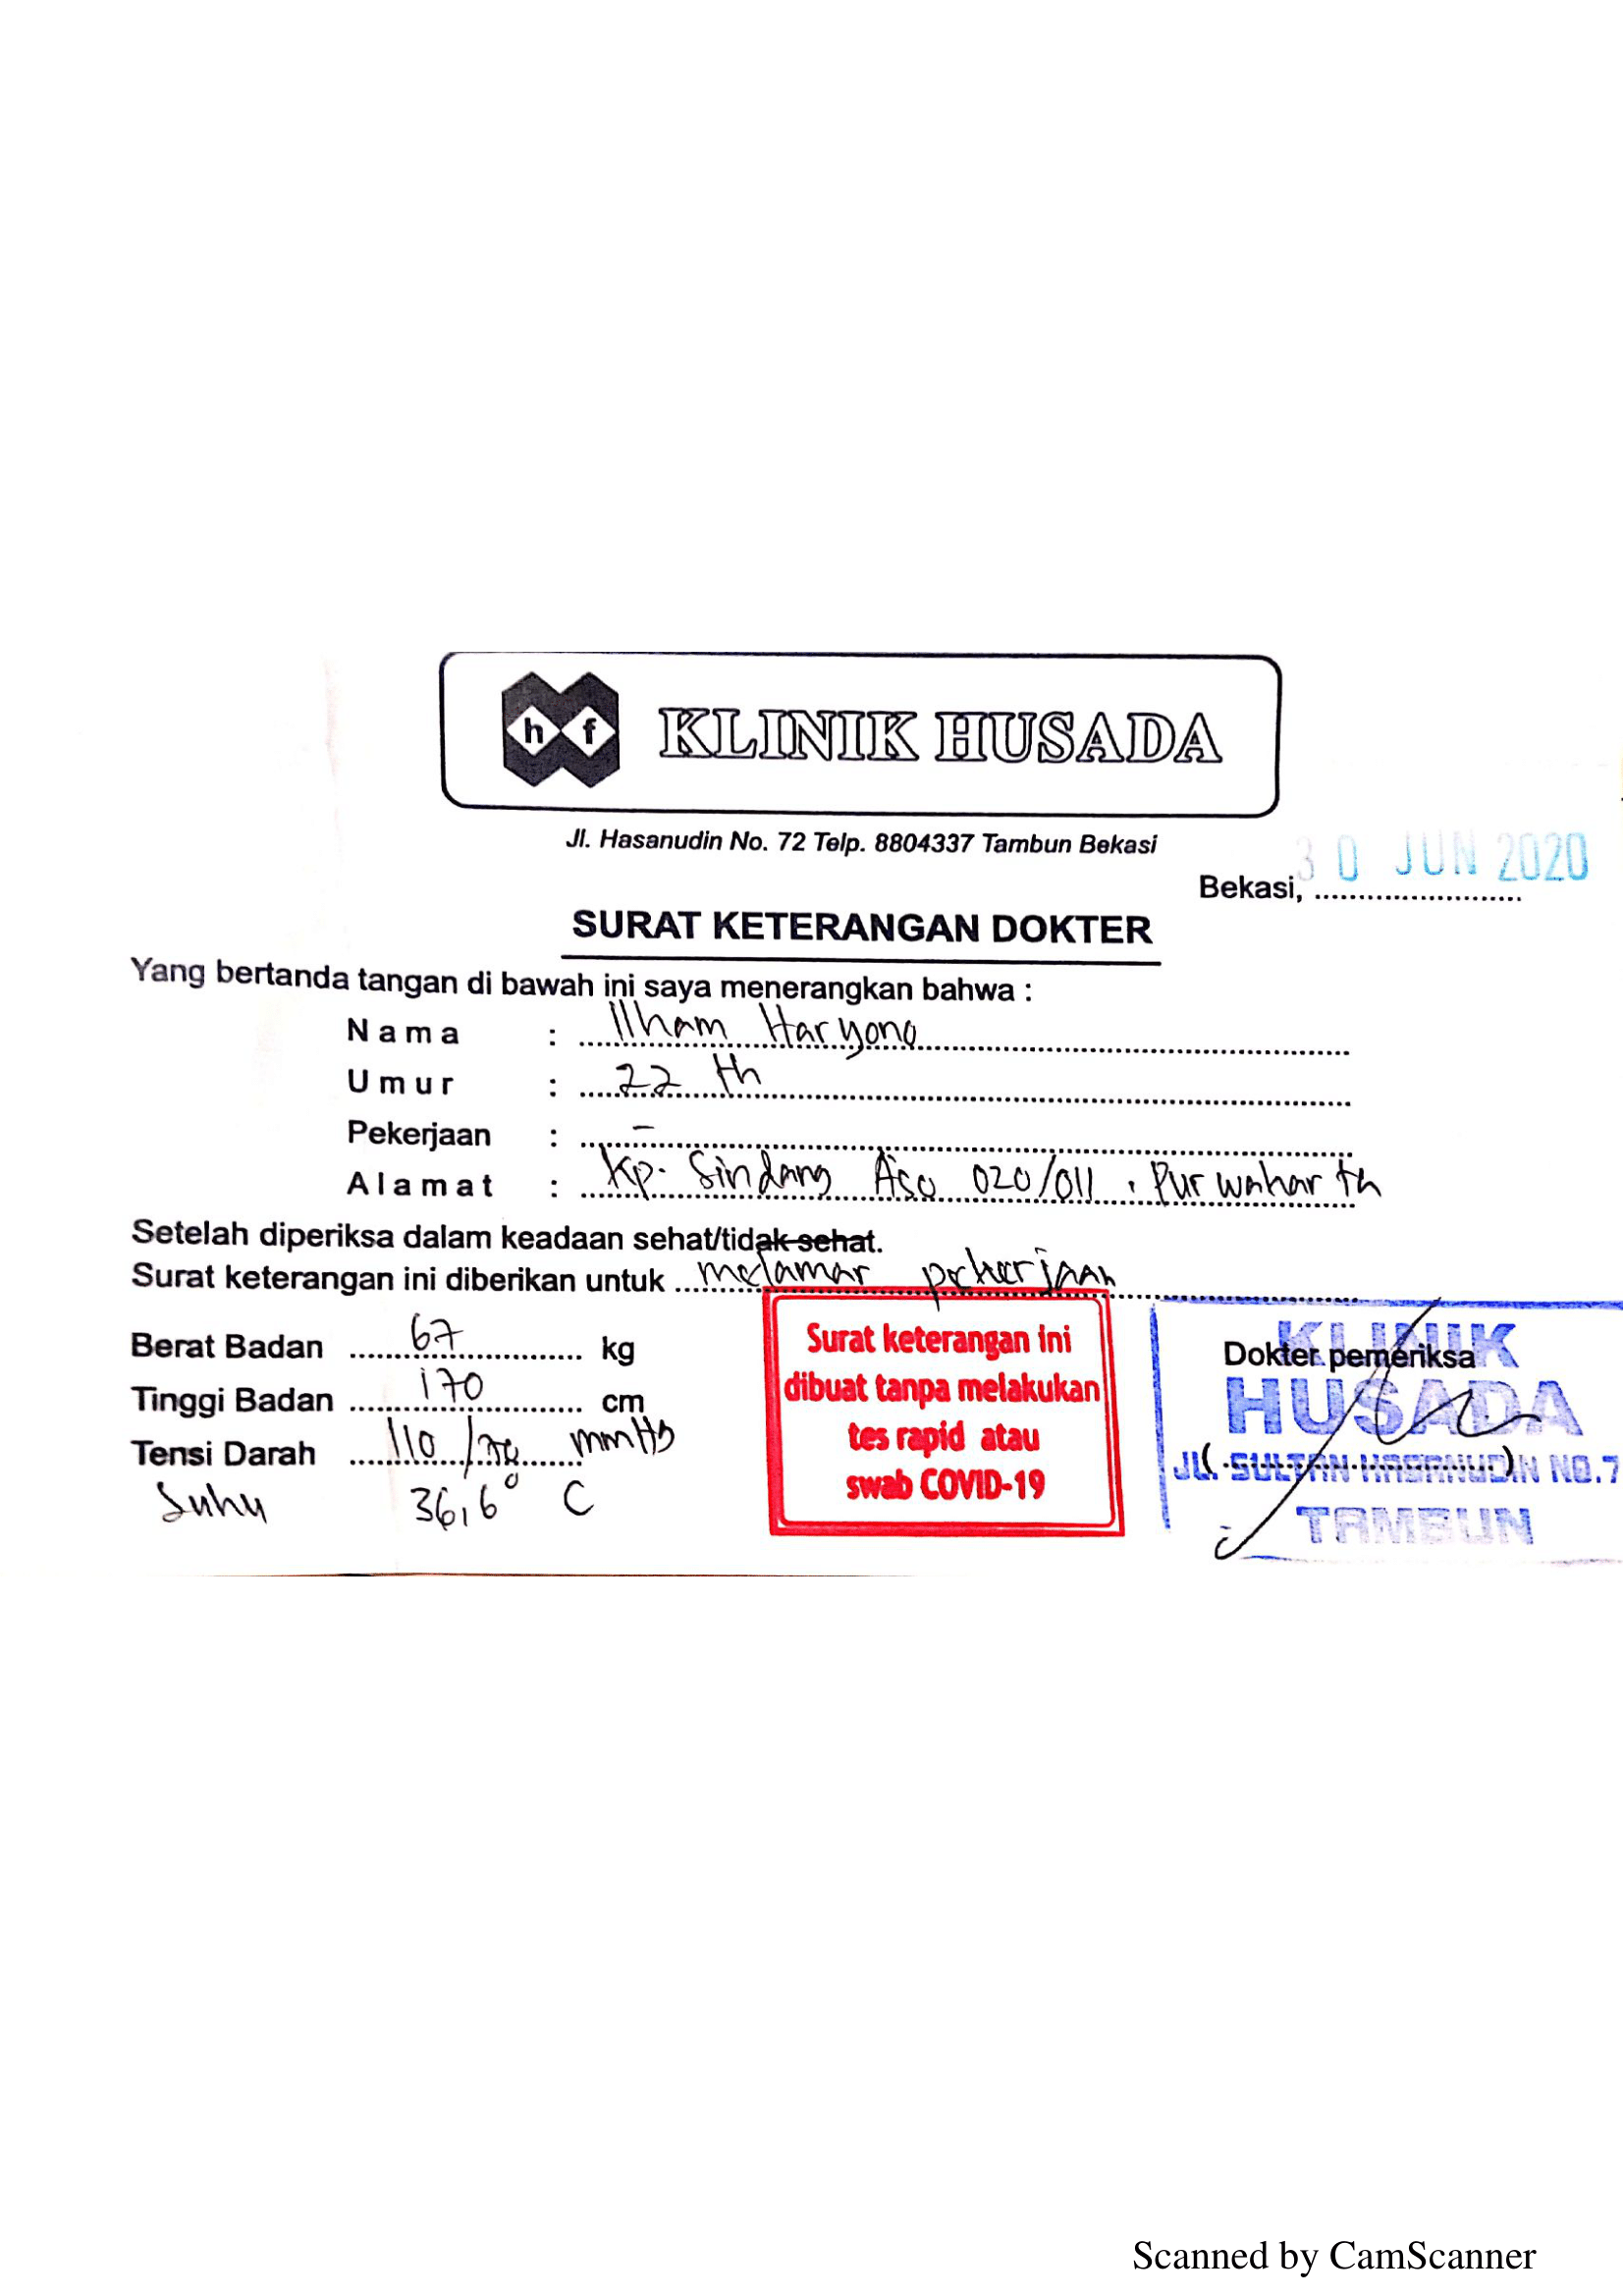 h f KLINIK HUSADA
Jl. Hasanudin No. 72 Telp. 8804337 Tambun Bekasi
Bekasi, 30 JUN 2020
SURAT KETERANGAN DOKTER
Yang bertanda tangan di bawah ini saya menerangkan bahwa :
Nama : Ilham Haryono
Umur : 22 th
Pekerjaan : -
Alamat : Kp. Sindang 020/011, Purwakarta
Setelah diperiksa dalam keadaan sehat/tidak sehat.
Surat keterangan ini diberikan untuk melamar pekerjaan
Berat Badan 67 kg
Tinggi Badan 170 cm
Tensi Darah 110/70 mmHg
Suhu 36,6° C
Surat keterangan ini
dibuat tanpa melakukan
tes rapid atau
swab COVID-19
Dokter pemeriksa
KLINIK
HUSADA
JL. SULTAN HASANUDIN NO.7
TAMBUN
Scanned by CamScanner